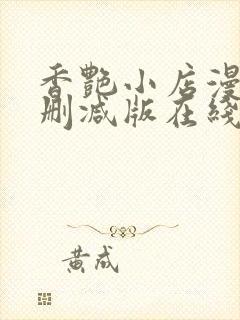 香艷小店漫
刪減版在綫
黃成